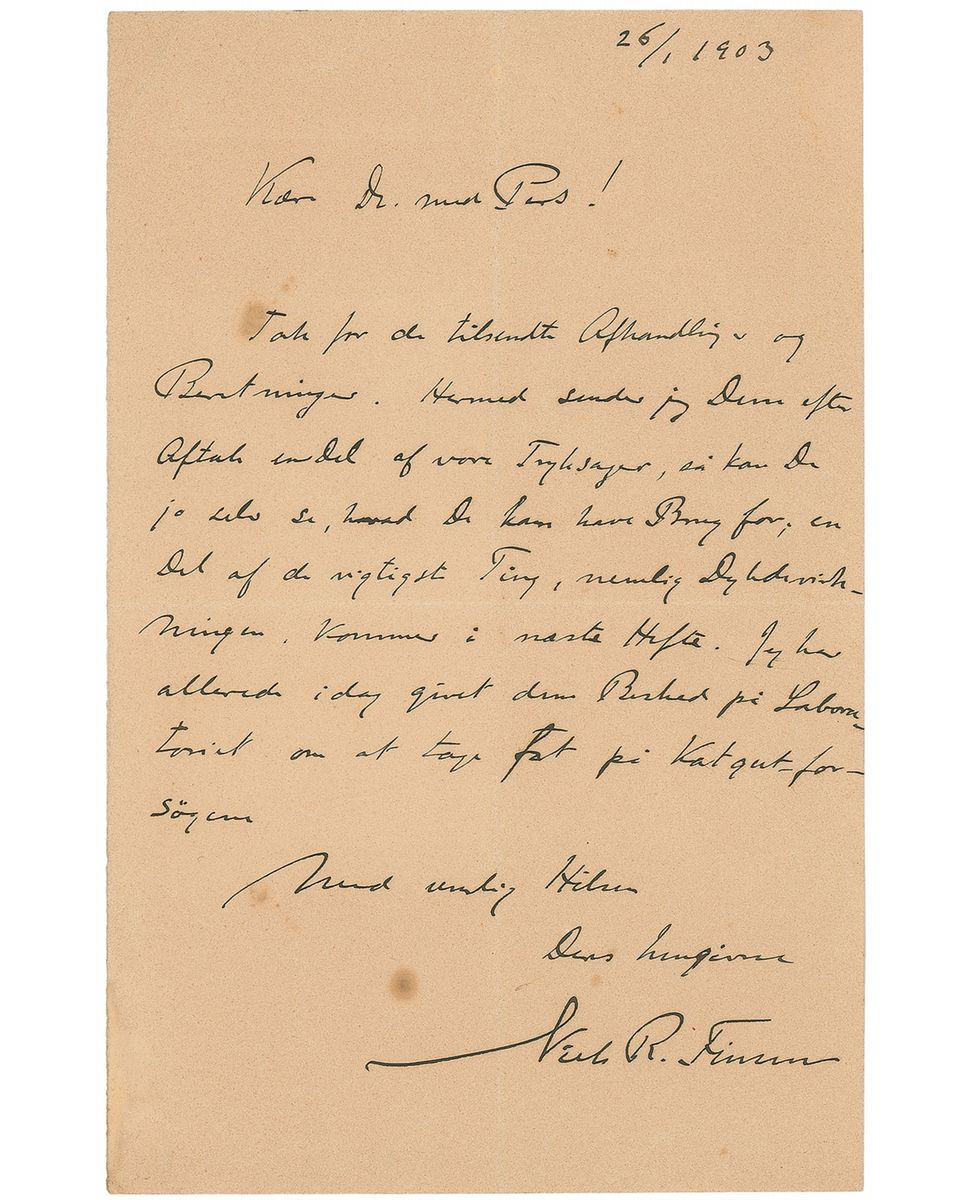 26/1 1903
Kære Dr. med Pers!
Tak for de tilsendte Afhandlinger og
Beretninger. Hermed sender jeg Dem efter
Aftale en Del af vore Tryksager, så kan De
jo selv se, hvad De kan have Brug for; en
Del af de vigtigste Ting, nemlig Dybdevirk-
ningen, kommer i næste Hefte. Jeg har
allerede idag givet dem Besked på Labora-
toriet om at tage fat på Katgut-for-
søgene
Med venlig Hilsen
Deres hengivne
Niels R. Finsen